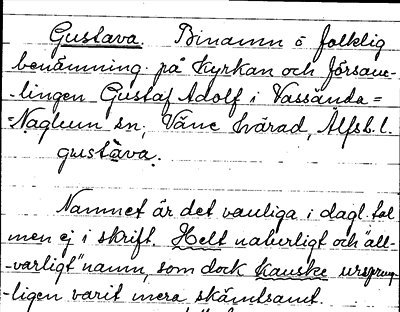 Gustava. Binamn o folklig
benämning på Kyrkan och försam-
-lingen Gustaf Adolf i Vassända=
=Naglum sn, Väne härad, Älfsb. l.
gustàva.
Namnet är det vanliga i dagl. tal
men ej i skrift. Helt naturligt och "all-
-varligt" namn, som dock kanske ursprung-
-ligen varit mera skämtsamt.